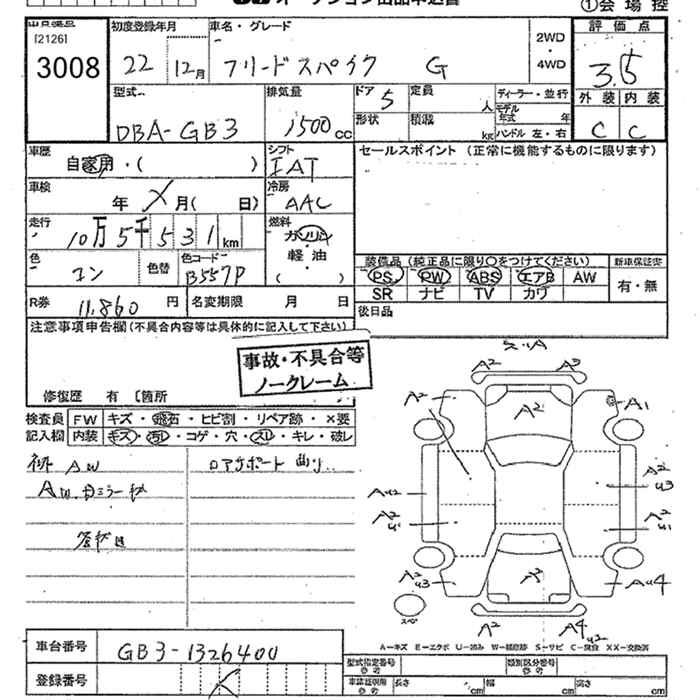 ①会場控
[2126]
3008
初度登録年月
22 12月
車名・グレード
フリードスパイク G
2WD
・
4WD
評価点
3.5
外装 内装
C C
型式
DBA-GB3
排気量
1500cc
ドア 5
形状
定員 人
積載 kg
ディーラー・並行
モデル年式 年
ハンドル 左・右
車歴
自家用・( )
シフト
IAT
セールスポイント (正常に機能するものに限ります)
車検
年 月( 日)
冷房
AAC
走行
10万5千531km
燃料
ガソリン
軽油
( ・ )
色
コン
色替
色コード
B557P
装備品 (純正品に限り○をつけてください)
PS PW ABS エアB AW
SR ナビ TV カワ
新車保証書
有・無
R券
11,860円
名変期限 月 日
後日品
注意事項申告欄(不具合内容等は具体的に記入して下さい)
事故・不具合等
ノークレーム
修復歴 有 〔箇所
検査員記入欄
FW キズ・飛石・ヒビ割・リペア跡・×要
内装 キズ・汚レ・コゲ・穴・スレ・キレ・破レ
AW
ロアサポート曲り
A2 A3
A2 A2 A1
AU2 A2 U3
A2 U1 A2 U1
A2 U3 A2 AU4
スペ
A2 A4 U2
A-キズ E-エクボ U-凹み W-補修跡 S-サビ C-腐食 XX-交換済
車台番号
GB3-1326400
登録番号
型式指定番号 参考
類別区分番号 参考
車請証明用 参考
長さ cm
幅 cm
高さ cm